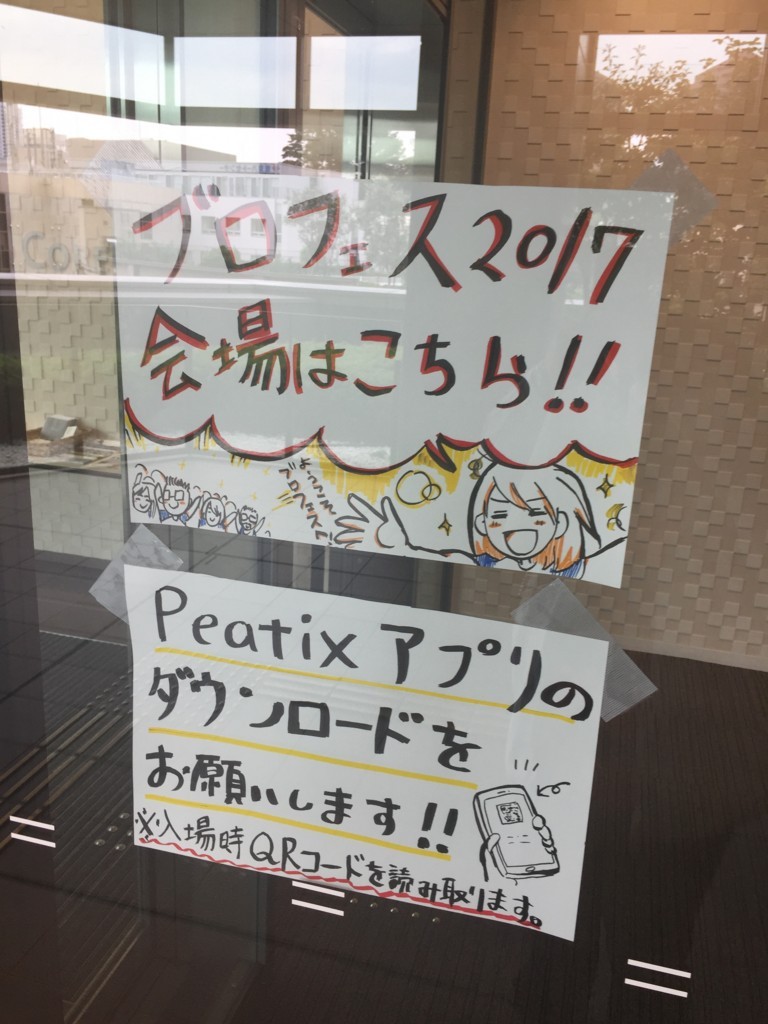 ブロフェス2017
会場はこちら!!
ようこそ
ブロフェスへ!
Peatixアプリの
ダウンロードを
お願いします!!
※入場時QRコードを読み取ります。